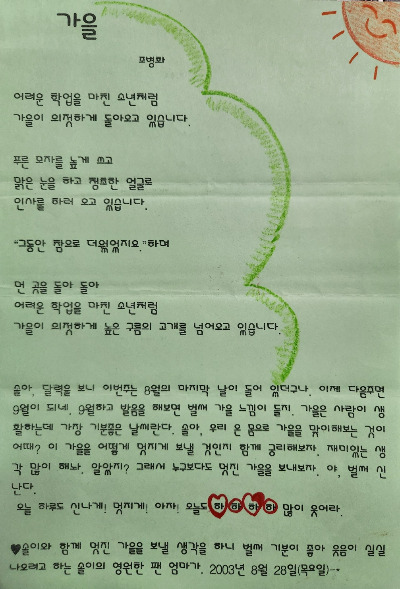 가을
조병화
어려운 학업을 마친 소년처럼
가을이 의젓하게 돌아오고 있습니다.
푸른 모자를 높게 쓰고
맑은 눈을 하고 청초한 얼굴로
인사를 하러 오고 있습니다.
"그동안 참으로 더웠었지요."하며
먼 곳을 돌아 돌아
어려운 학업을 마친 소년처럼
가을이 의젓하게 높은 구름의 고개를 넘어오고 있습니다.
솔아, 달력을 보니 이번주는 8월의 마지막 날이 들어 있더구나. 이제 다음주면
9월이 되네. 9월하고 발음을 해보면 벌써 가을 느낌이 들지. 가을은 사람이 생
활하는데 가장 기분좋은 날씨란다. 솔아, 우리 온 몸으로 가을을 맞이해보는 것이
어때? 이 가을을 어떻게 멋지게 보낼 것인지 함께 궁리해보자. 재미있는 생
각 많이 해놔. 알았지? 그래서 누구보다도 멋진 가을을 보내보자. 야, 벌써 신
난다.
오늘 하루도 신나게! 멋지게! 아자! 오늘도 하 하 하 하 많이 웃어라.
♥솔이와 함께 멋진 가을을 보낼 생각을 하니 벌써 기분이 좋아 웃음이 실실
나오려고 하는 솔이의 영원한 팬 엄마가. 2003년 8월 28일(목요일)→